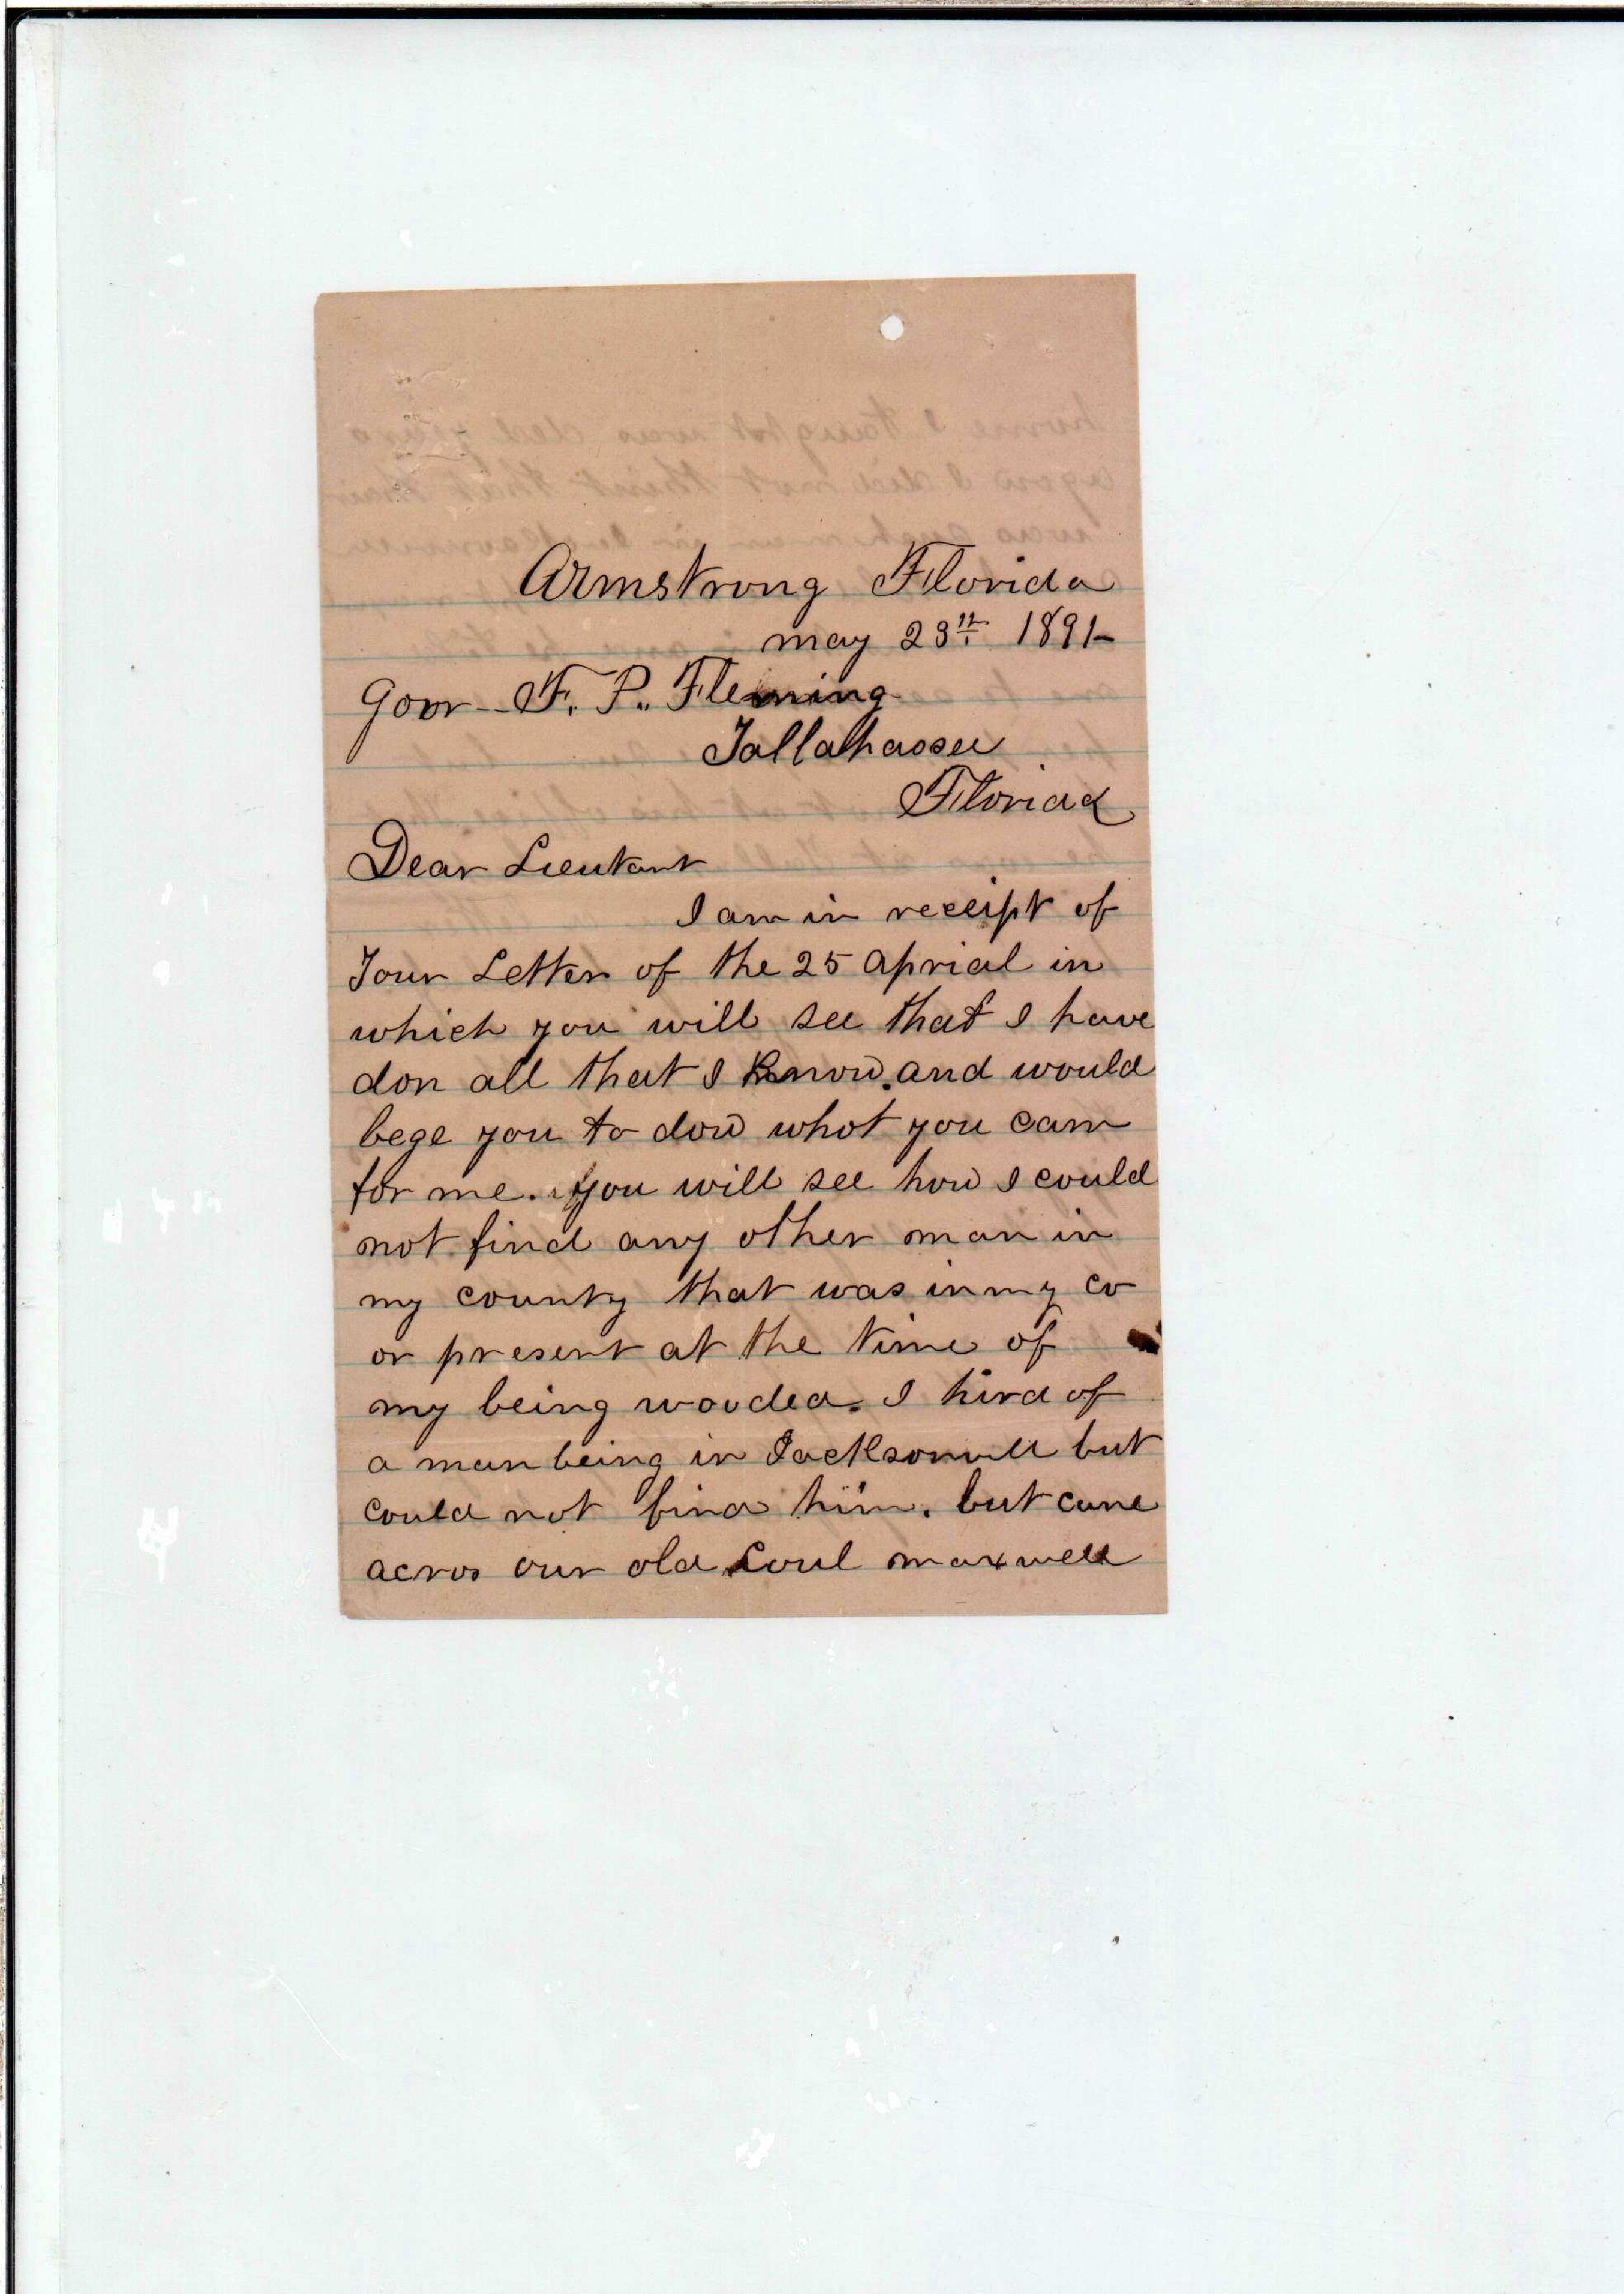 Armstrong Florida
may 23th 1891
Govr F. P. Fleming
Tallahassee
Florida
Dear Lieutant
I am in receipt of
Your Letter of the 25 aprial in
which you will see that I have
don all that I Know. and would
bege you to dow whot you can
for me. you will see how I could
not find any other man in
my county that was in my co
or present at the time of
my being wooded. I hird of
a man being in Jacksonvill but
could not find him. but came
acros our old Coul maxwell